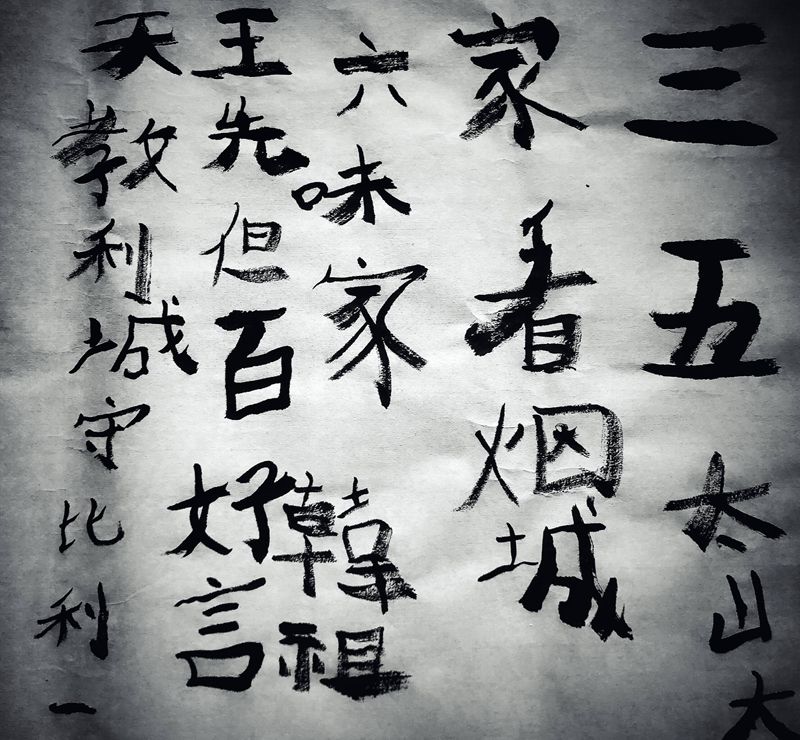 三五太山大
家看烟城
六味家韓祖
王先但百好言
天教利城守比利一